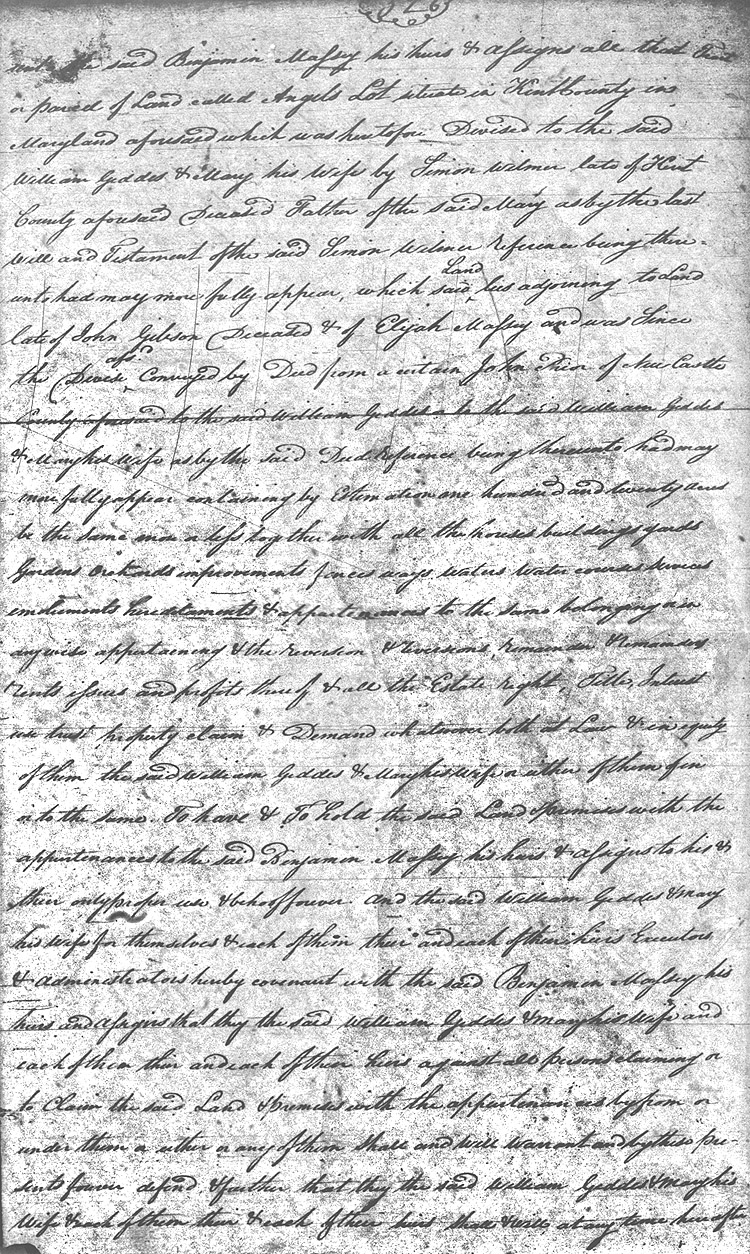 326
unto the said Benjamin Massey his heirs & assigns all that Tract
or parcel of Land called Angels Lot situate in Kent County in
Maryland aforesaid which was heretofore Devised to the said
William Geddes & Mary his Wife by Simon Wilmer late of Kent
County aforesaid Deceased Father of the said Mary as by the last
will and Testament of the said Simon Wilmer reference being there-
unto had may more fully appear, which said Land lies adjoining to Land
late of John Gibson Deceased & of Elijah Massey and was Since
the Devise afsd Conveyed by Deed from a certain John of New Castle
County aforesaid to the said William Geddes & to the said William Geddes
& Mary his Wife as by the said Deed Reference being thereunto had may
more fully appear containing by Estimation one hundred and twenty acres
be the same more or less together with all the houses buildings yards
Gardens Orchards improvements fences ways waters water courses
emoluments hereditaments & appurtenances to the same belonging or in
any wise appertaining & the reversion & reversions, remainder & remainders
rents issues and profits thereof & all the Estate right, Title, Interest
use trust property claim & Demand whatsoever both at Law & in equity
of them the said William Geddes & Mary his Wife or either of them of in
or to the same. To have & To hold the said Land & premises with the
appurtenances to the said Benjamin Massey his heirs & assigns to his &
their only proper use & behoof forever. and the said William Geddes & Mary
his Wife for themselves & each of them their and each of their heirs Executors
& administrators hereby covenant with the said Benjamin Massey his
heirs and assigns that they the said William Geddes & Mary his Wife and
each of them their and each of their heirs against all persons claiming or
to Claim the said Land & premises with the appurtenances by from or
under them or either or any of them shall and will warrant and by these pre-
sents forever defend & further that they the said William Geddes & Mary his
Wife & each of them their & each of their heirs shall & will at any time hereafter